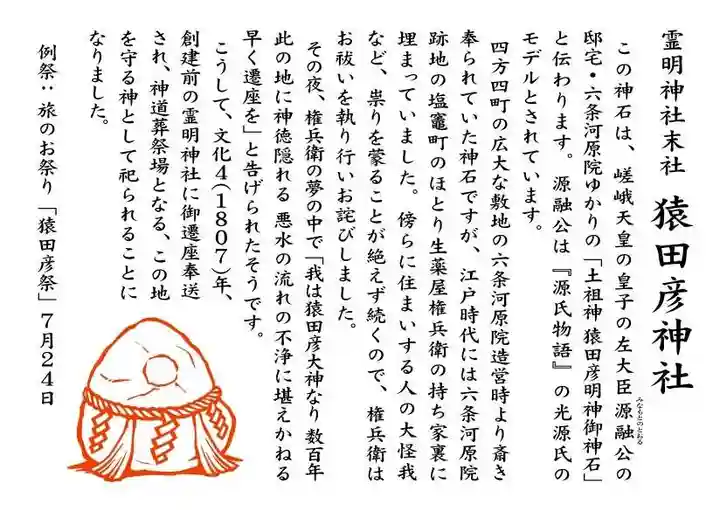 霊明神社末社 猿田彦神社
この神石は、嵯峨天皇の皇子の左大臣源融公の
みなもとのとおる
邸宅・六条河原院ゆかりの「土祖神 猿田彦明神御神石」
と伝わります。 源融公は『源氏物語』の光源氏の
モデルとされています。
四方四町の広大な敷地の六条河原院造営時より斎き
奉られていた神石ですが、江戸時代には六条河原院
跡地の塩竈町のほとり生薬屋権兵衛の持ち家裏に
埋まっていました。 傍らに住まいする人の大怪我
など、祟りを蒙ることが絶えず続くので、権兵衛は
お祓いを執り行いお詫びしました。
その夜、権兵衛の夢の中で「我は猿田彦大神なり 数百年
此の地に神徳隠れる 悪水の流れの不浄に堪えかねる
早く遷座を」と告げられたそうです。
こうして、文化4(1807)年、
創建前の霊明神社に御遷座奉送
され、神道葬祭場となる、この地
を守る神として祀られることに
なりました。
例祭:旅のお祭り「猿田彦祭」7月24日